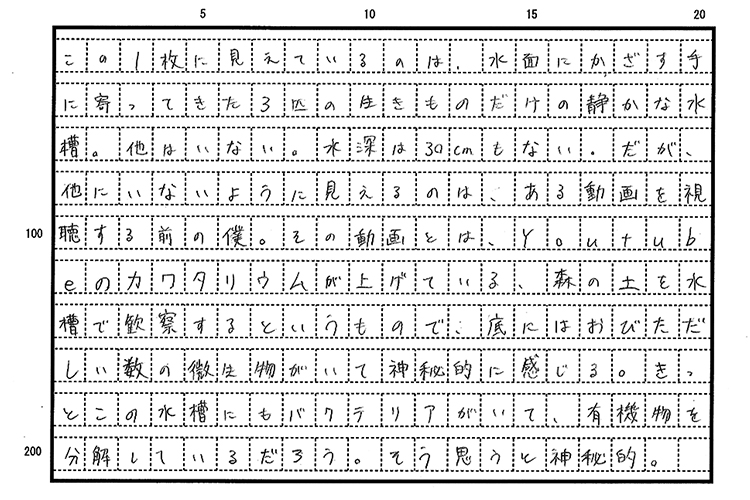 5 10 15 20
この1枚に見えているのは、水面にかざす手
に寄ってきた3匹の生きものだけの静かな水
槽。他はいない。水深は30cmもない。だが、
他にいないように見えるのは、ある動画を視
100 聴する前の僕。その動画とは、Youtub
eのカワタリウムが上げている、森の土を水
槽で観察するというもので、底にはおびただ
しい数の微生物がいて神秘的に感じる。きっ
とこの水槽にもバクテリアがいて、有機物を
200 分解しているだろう。そう思うと神秘的。